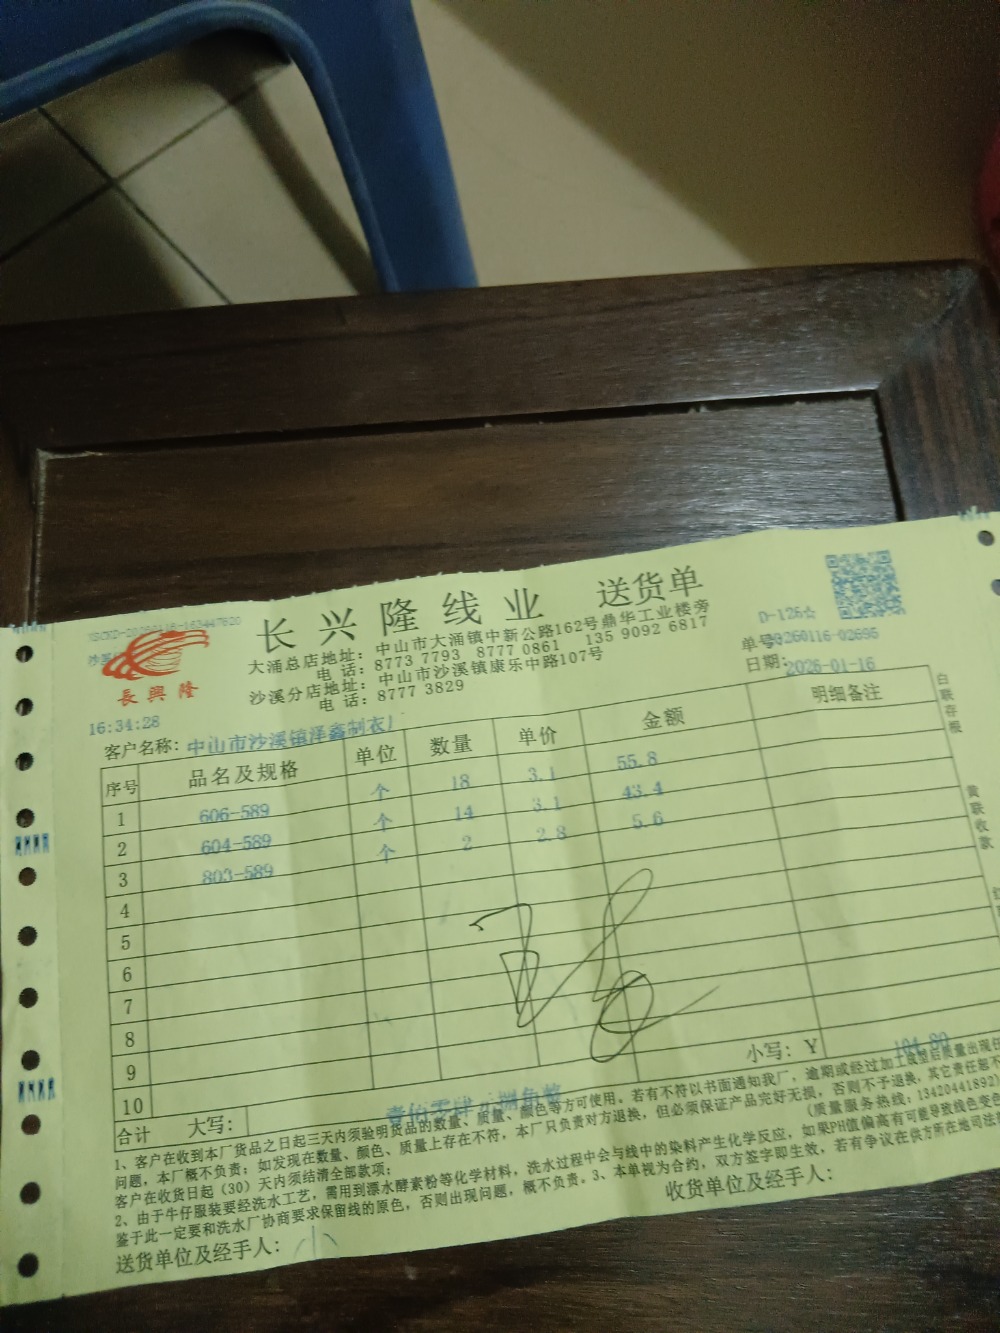 长兴隆线业 送货单
大涌总店地址：中山市大涌镇中新公路162号鼎华工业楼旁
电 话：8773 7793 8777 0861 135 9092 6817
沙溪分店地址：中山市沙溪镇康乐中路107号
电 话：8777 3829
長興隆
D-126☆
单号
20260116-02695
日期：2026-01-16
16:34:28
客户名称：中山市沙溪镇洋鑫制衣厂
序号 品名及规格 单位 数量 单价 金额 明细备注
1 606-589 个 18 3.1 55.8
2 604-589 个 14 3.1 43.4
3 803-589 个 2 2.8 5.6
4
5
6
7
8
9
10
合计 大写：壹佰零肆元捌角整 小写：￥104.80
1、客户在收到本厂货品之日起三天内须验明货品的数量、质量、颜色等方可使用。若有不符以书面通知我厂，逾期或经过加工成型后质量出现任
问题，本厂概不负责；如发现在数量、颜色、质量上存在不符，本厂只负责对方退换，但必须保证产品完好无损，否则不予退换，其它责任恕不
客户在收货日起（30）天内须结清全部款项；
（质量服务热线：13420441892）
2、由于牛仔服装要经洗水工艺，需用到漂水酵素粉等化学材料，洗水过程中会与线中的染料产生化学反应，如果PH值偏高有可能导致线色变色
鉴于此一定要和洗水厂协商要求保留线的原色，否则出现问题，概不负责。3、本单视为合约，双方签字即生效，若有争议在供方所在地司法
送货单位及经手人：小
收货单位及经手人：
白联存根
黄联收款